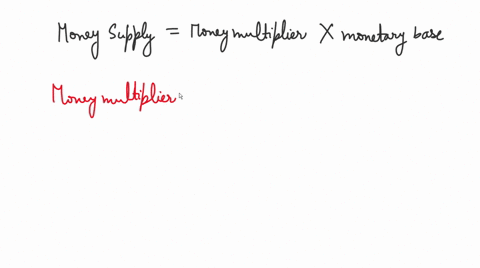 Money Supply = Money multiplier X monetary base
Money multiplier